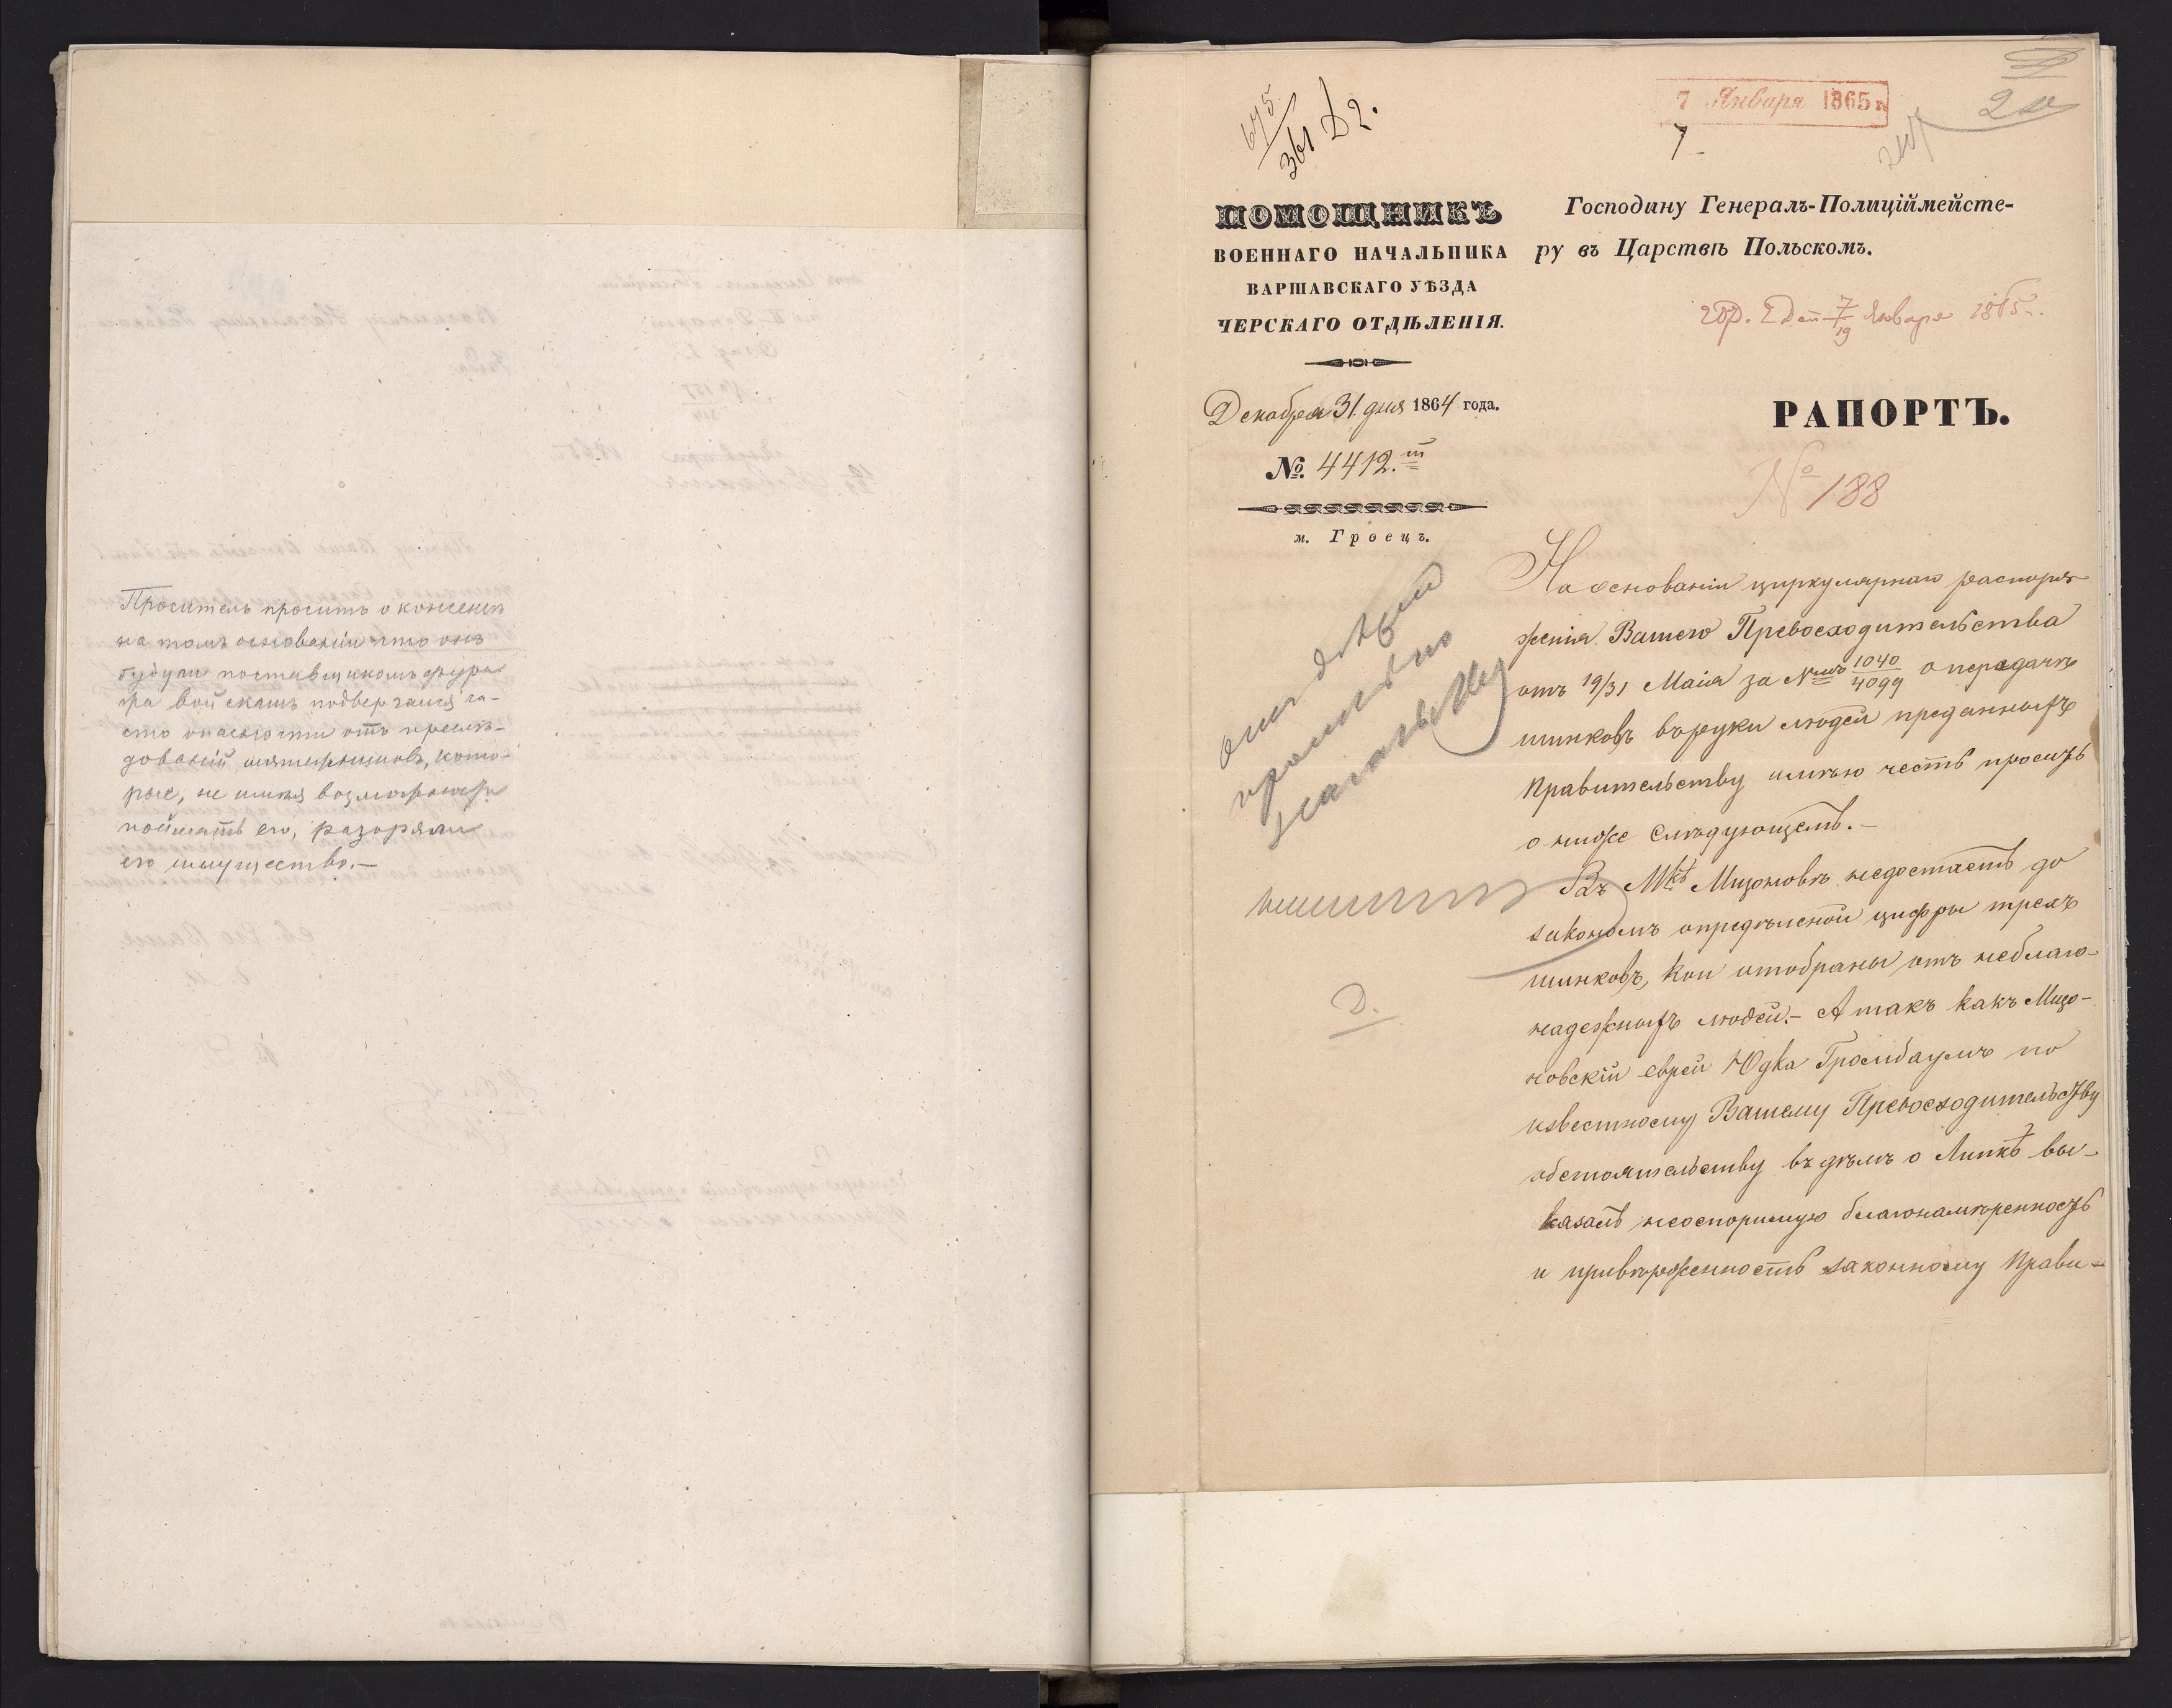 Проситель проситъ о консенсѣ
на томъ основаніи что онъ
будучи поставщикомъ фура-
жа войскамъ подвергался ча-
сто опасности отъ преслѣ-
дованій мятежниковъ, кото-
рые, не имѣя возможности
поймать его, разоряли
его имущество.—
675
361 Д2.
7 Января 1865 г.
7
ПОМОЩНИКЪ
ВОЕННАГО НАЧАЛЬНИКА
ВАРШАВСКАГО УѢЗДА
ЧЕРСКАГО ОТДѢЛЕНІЯ.
Декабря 31. дня 1864 года.
№. 4412.
м. Гроецъ.
Господину Генералъ-Полиціймейсте-
ру въ Царствѣ Польскомъ.
7/19 Января 1865
РАПОРТЪ.
№ 188
На основаніи циркулярнаго распоря-
женія Вашего Превосходительства
отъ 19/31 Маія за № 1040/4099 о передачѣ
шинковъ въ руки людей преданныхъ
Правительству имѣю честь просить
о ниже слѣдующемъ.—
Въ Мкѣ Мщоновѣ недостаетъ до
закономъ опредѣленой цифры трехъ
шинковъ, кои отобраны отъ неблаго-
надежныхъ людей.— А такъ какъ Мщо-
новскій еврей Юдка Гросбаумъ по
известному Вашему Превосходительству
обстоятельству въ дѣлѣ о Липкѣ вы-
казалъ неоспоримую благонамѣренность
и приверженность законному Прави-
Д.